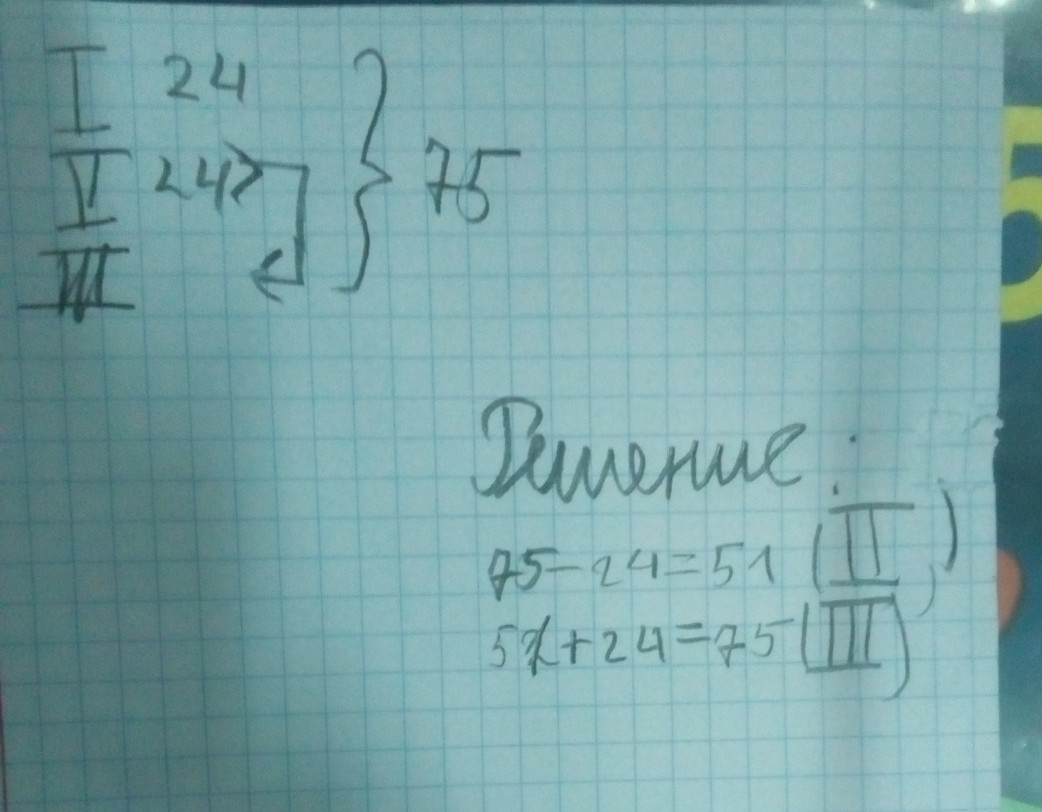 I 24
V 24> } 75
III
Решение:
75-24=51 (II)
51+24=75 (III)
5